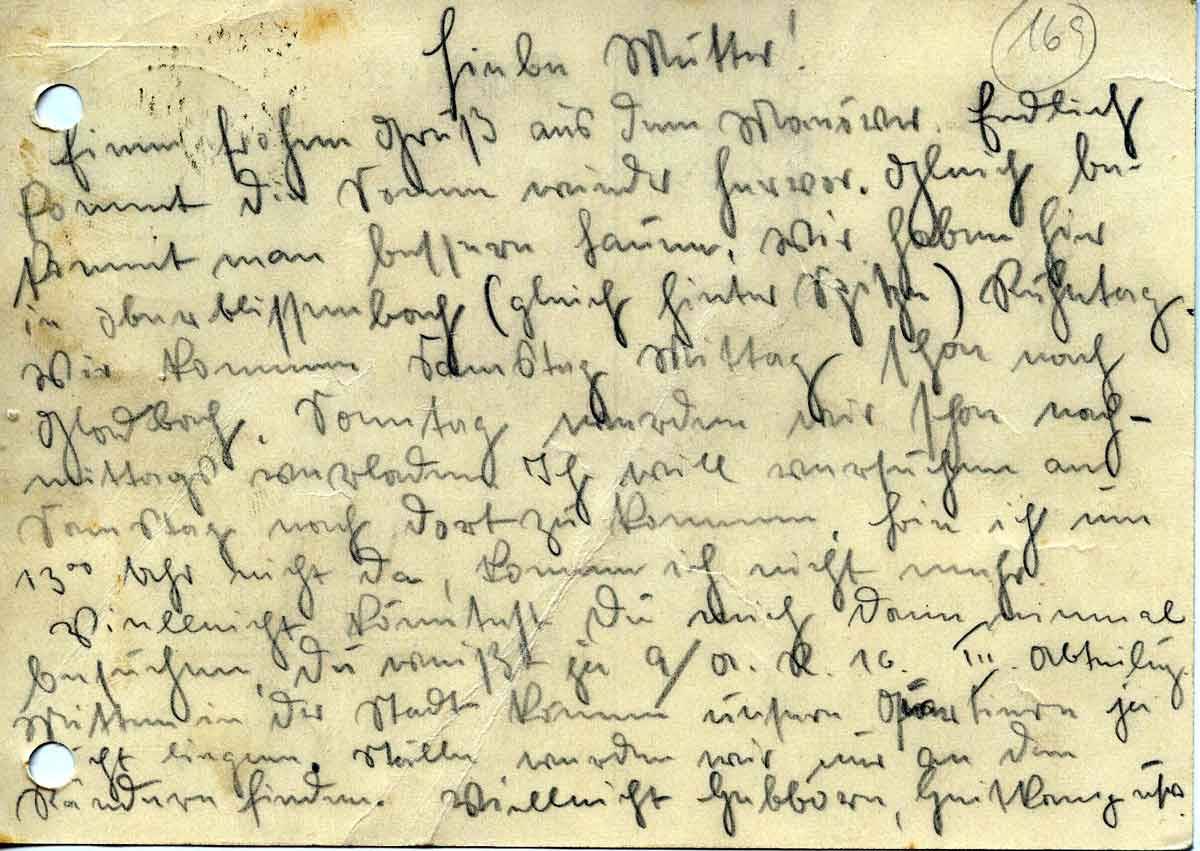 169
Liebe Mutter!
Einen frohen Gruß aus dem Manöver. Endlich
kommt die Sonne wieder hervor. Gleich be-
kommt man bessere Laune. Wir haben hier
in Oberblissenbach (gleich hinter Spitze) Ruhetag.
Wir kommen Samstag Mittag schon nach
Gladbach. Sonntag werden wir schon nach-
mittags verladen. Ich will versuchen am
Samstag nach dort zu kommen, bin ich um
13⁰⁰ Uhr nicht da, komme ich nicht mehr.
Vielleicht könntest Du mich dann einmal
besuchen, Du weißt ja 9/A. R. 16. III. Abteilung.
Mitten in der Stadt können unsere Quartiere ja
nicht liegen. Ställe werden wir nur an den
Rändern finden. Vielleicht Hebborn, Heidkamp usw.